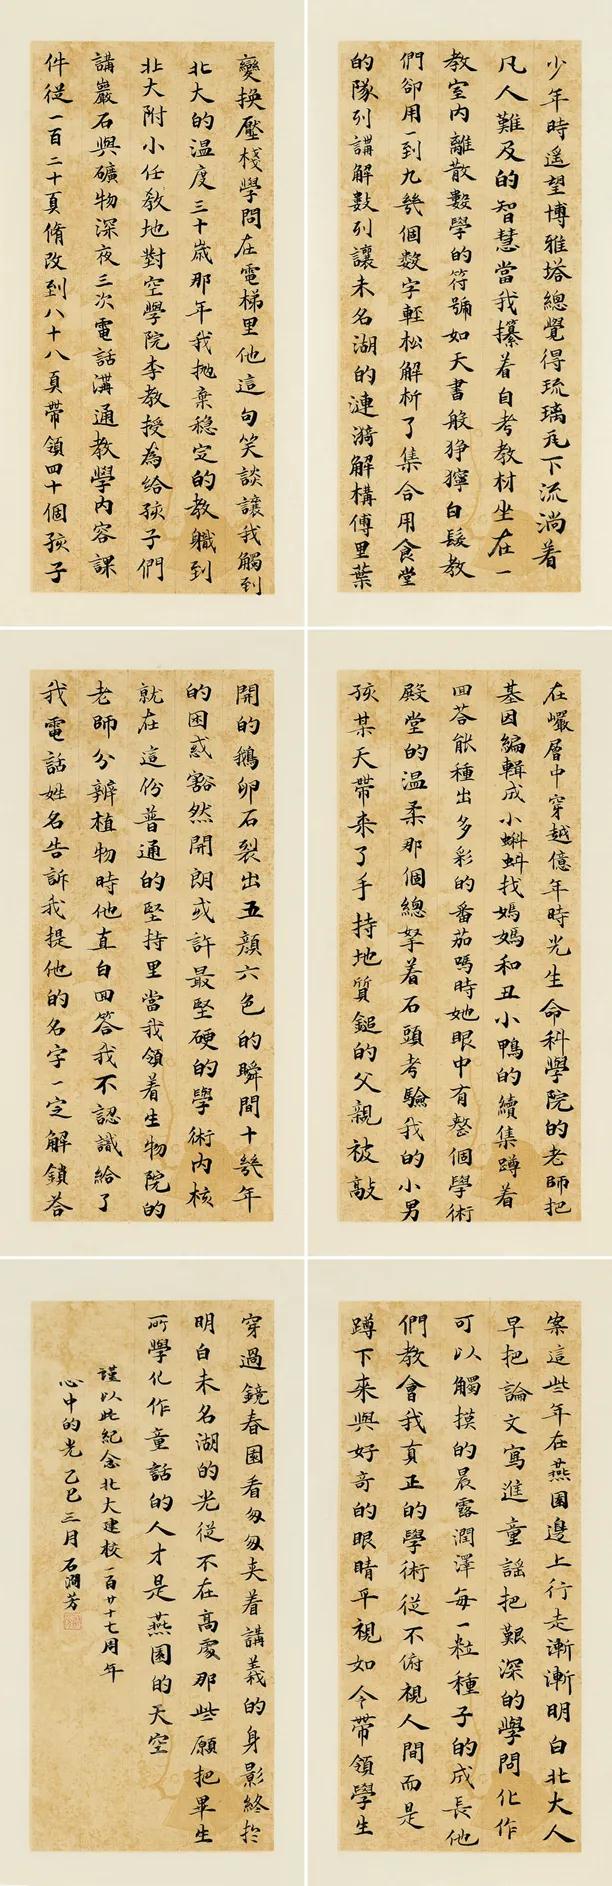 少年時遥望博雅塔總覺得琉璃瓦下流淌着
凡人難及的智慧當我攥着自考教材坐在一
教室内離散數學的符號如天書般猙獰白髮教
們卻用一到九幾個数字輕松解析了集合用食堂
的隊列講解数列讓未名湖的漣漪解構傅里葉
變换壓棧學問在電梯里他這句笑談讓我觸到
北大的温度三十歲那年我抛棄穩定的教職到
北大附小任教地對空學院李教授為給孩子們
講巖石與礦物深夜三次電話溝通教學内容課
件從一百二十頁脩改到八十八頁帶領四十個孩子
在巖層中穿越億年時光生命科學院的老師把
基因編輯成小蝌蚪找媽媽和丑小鴨的續集蹲着
回答能種出多彩的番茄嗎時她眼中有整個學術
殿堂的温柔那個總拏着石頭考驗我的小男
孩某天帶来了手持地質鎚的父親被敲
開的鵝卵石裂出五顔六色的瞬間十幾年
的困惑豁然開朗或許最堅硬的學術内核
就在這份普通的堅持里當我領着生物院的
老師分辨植物時他直白回答我不認識給了
我電話姓名告訴我提他的名字一定解鎖荅
案這些年在燕園邊上行走漸漸明白北大人
早把論文寫進童謡把艱深的學問化作
可以觸摸的晨露潤澤每一粒種子的成長他
們教會我真正的學術從不俯視人間而是
蹲下來與好奇的眼睛平視如今帶領學生
穿過鏡春園看匆匆夾着講義的身影終於
明白未名湖的光從不在高處那些願把畢生
所學化作童話的人才是燕園的天空
謹以此紀念北大建校一百廿十七周年
心中的光 乙巳三月 石潤芳